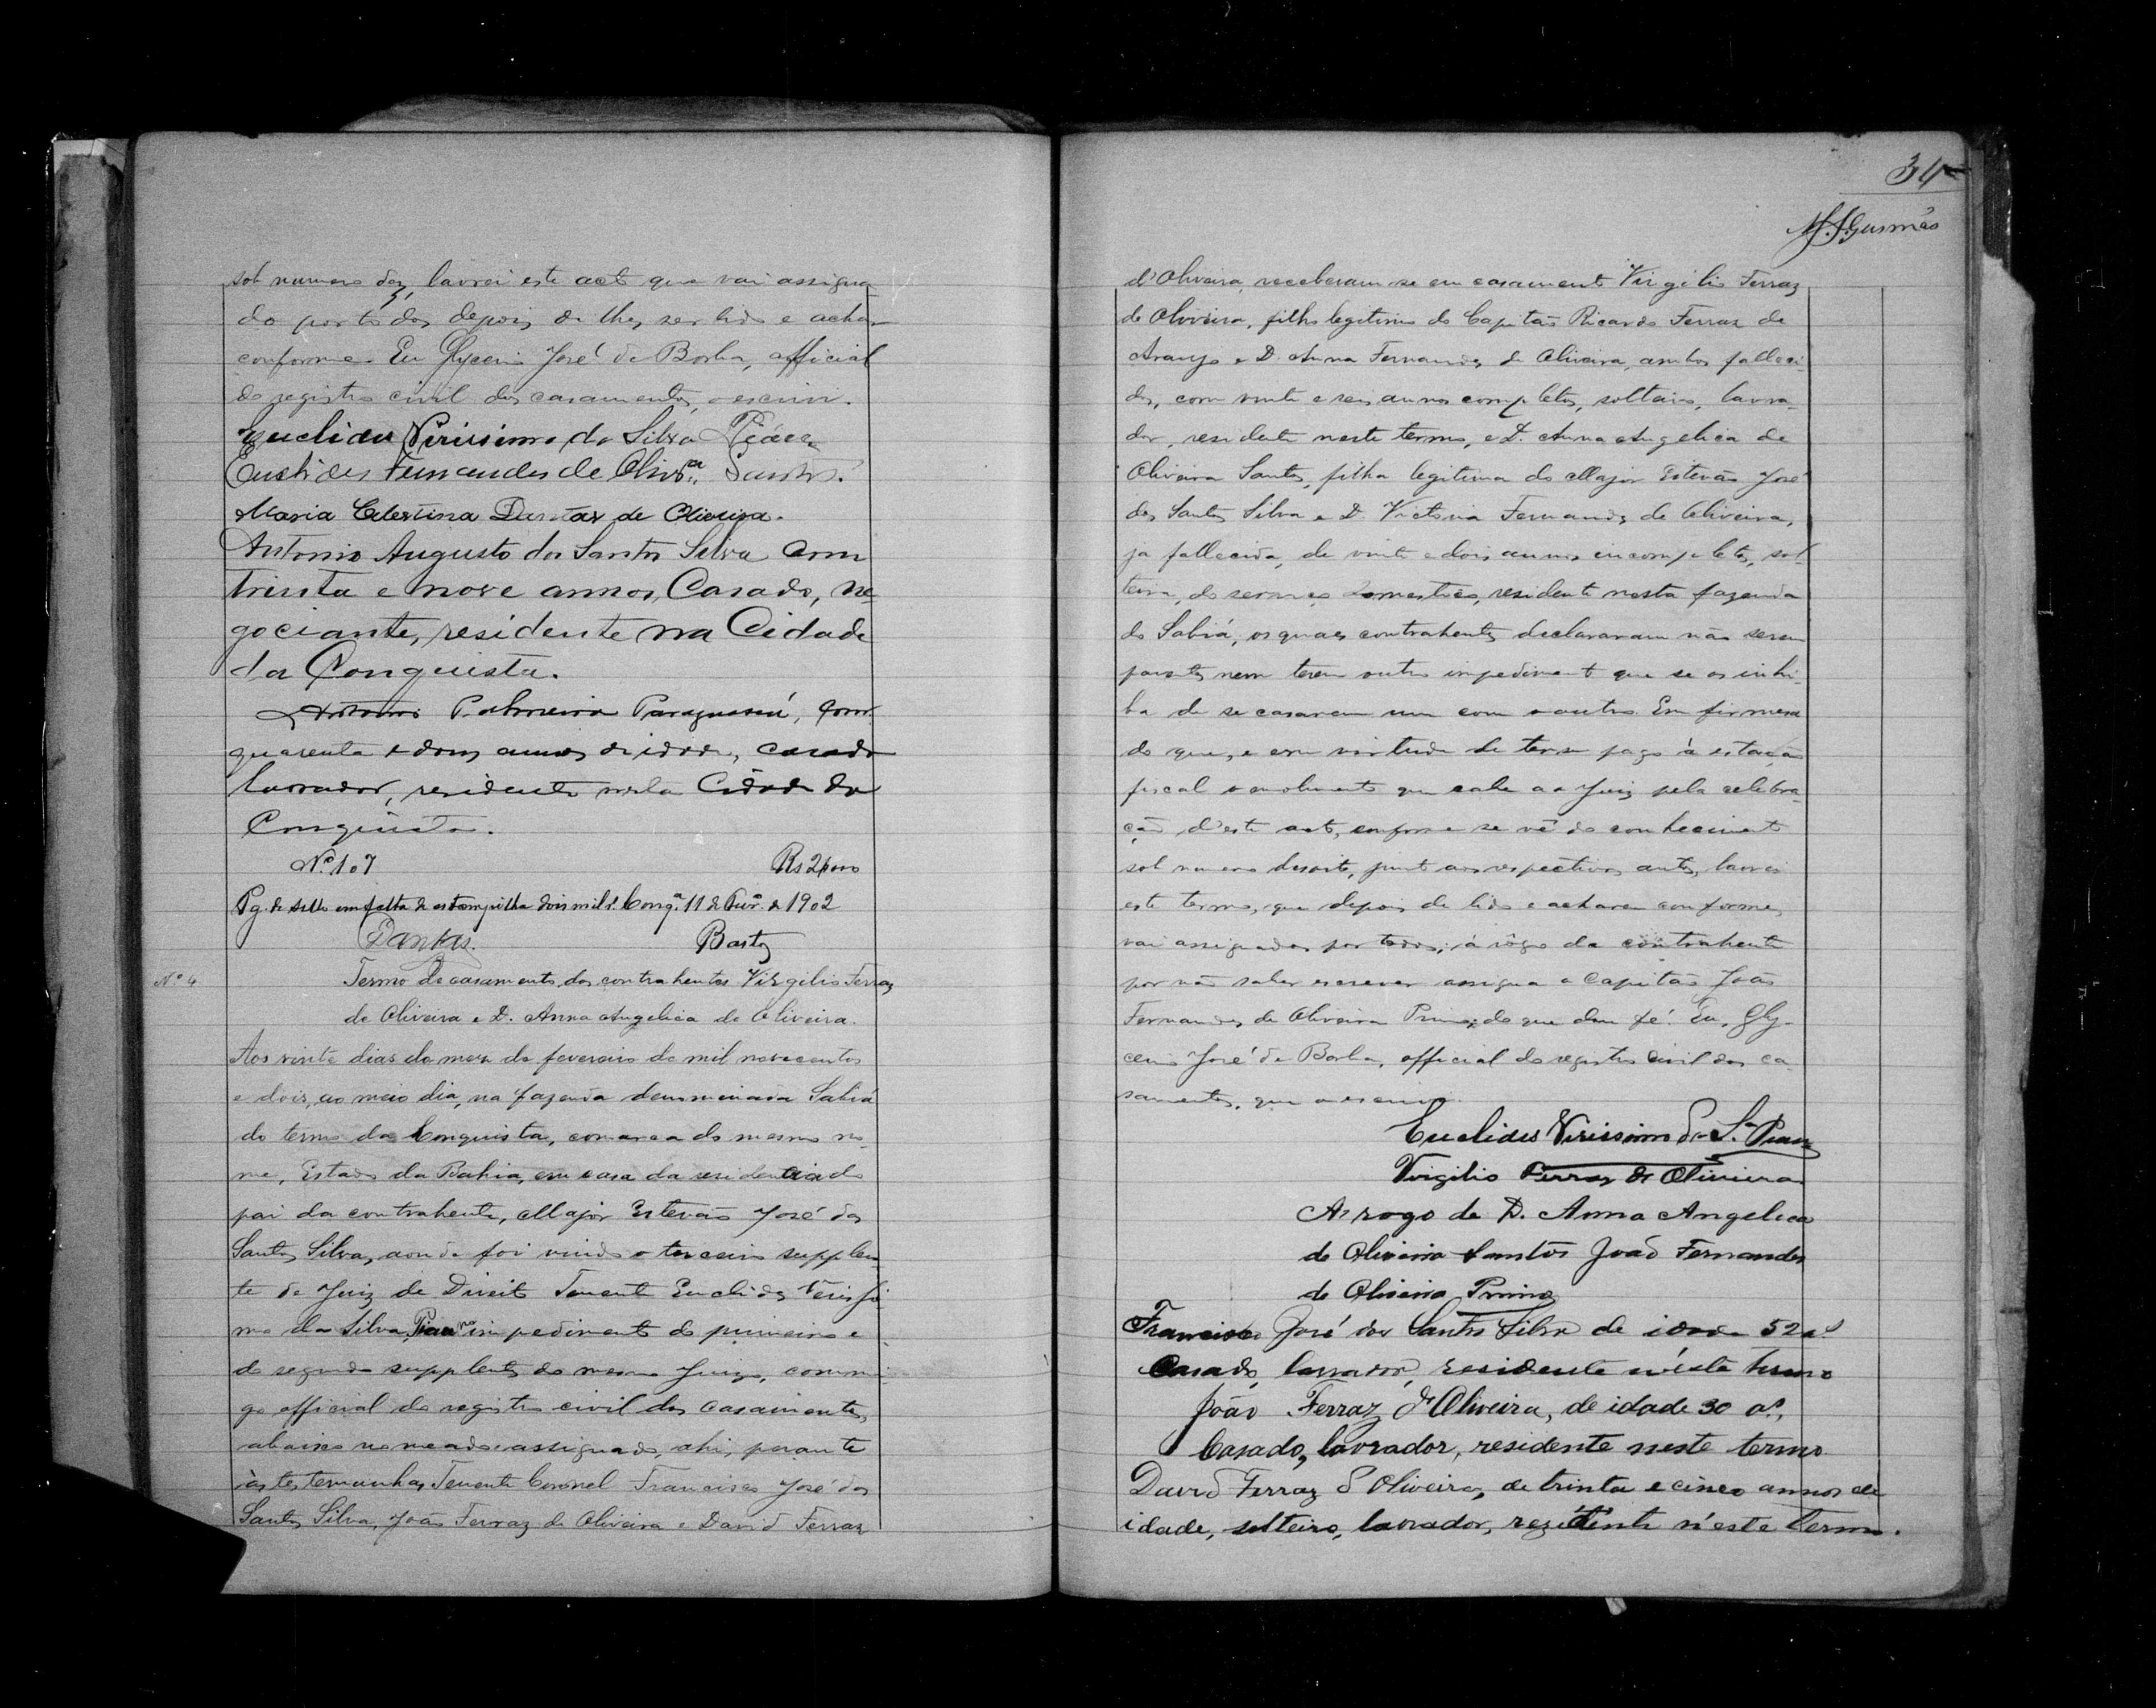 sob numero dez, lavrei este acto que vai assigna
do por todos depois de lhes ser lido e achar
conforme. Eu Glycerio José de Borba, official
do registro civil dos casamentos, o escrevi.
Euclides Virissimo da Silva
Euclides Fernandes de Olivra. Santos.
Maria Celestina Dantas de Oliveira.
Antonio Augusto dos Santos Silva com
trinta e nove annos, Casado, ne-
gociante, residente na Cidade
da Conquista.
Antonio Palmeira Paraguassú, com
quarenta e dous annos de idade, casado
lavrador, residente nesta Cidade da
Conquista.
No. 107 Rs 2$000
Pg. de sello em falta de estampilha dois mil r. Conqa. 11 de Fevro. de 1902
Dantas. Bastos
No 4
Termo de casamento dos contrahentes Virgilio Ferraz
de Oliveira e D. Anna Angelica de Oliveira.
Aos vinte dias do mez de fevereiro de mil novecentos
e dois, ao meio dia, na fazenda denominada Sabiá
do termo da Conquista, comarca do mesmo no-
me, Estado da Bahia, em casa da residencia do
pai da contrahente, Major Estevão José dos
Santos Silva, aonde foi vindo o terceiro supplen
te do Juiz de Direito Tenente Euclides Verissi
mo da Silva no impedimento do primeiro e
do segundo supplentes do mesmo Juizo, commi
go official do registro civil dos casamentos,
abaixo nomeado e assignado, ahi, perante
as testemunhas Tenente Coronel Francisco José dos
Santos Silva, João Ferraz de Oliveira e David Ferraz
34
M. J. Gusmão
d'Oliveira, receberam-se em casamento Virgilio Ferraz
de Oliveira, filho legitimo do Capitão Ricardo Ferraz de
Araujo e D. Anna Fernandes de Oliveira, ambos falleci-
dos, com vinte e seis annos completos, solteiro, lavra-
dor, residente neste termo, e D. Anna Angelica de
Oliveira Santos, filha legitima do Major Estevão José
dos Santos Silva e D. Victoria Fernandes de Oliveira,
ja fallecida, de vinte e dois annos incompletos, sol-
teira, de serviços domesticos, residente nesta fazenda
do Sabiá, os quaes contrahentes declararam não serem
parentes nem terem outro impedimento que se os inhi-
ba de se casarem um com o outro. Em firmeza
do que, e em virtude de ter-se pago á estação
fiscal o emolumento que cabe ao Juiz pela celebra-
ção d'este acto, conforme se vê do conhecimento
sob numero desoito, junto aos respectivos autos, lavrei
este termo, que depois de lido e acharem conforme,
vai assignado por todos; á rôgo da contrahente
por não saber escrever assigna o Capitão João
Fernandes de Oliveira Primo; do que dou fé. Eu, Gly-
cerio José de Borba, official do registro civil dos ca
samentos, que o escrevi.
Euclides Virissimo da Sa.
Virgilio Ferraz de Oliveira
A rogo de D. Anna Angelica
de Oliveira Santos João Fernandes
de Oliveira Primo
Francisco José dos Santos Silva de idade 52 as.
Casado, lavrador, residente n'este termo
João Ferraz d'Oliveira, de idade 30 as.,
Casado, lavrador, residente neste termo
David Ferraz d'Oliveira, de trinta e cinco annos de
idade, solteiro, lavrador, rezidente n'este termo.